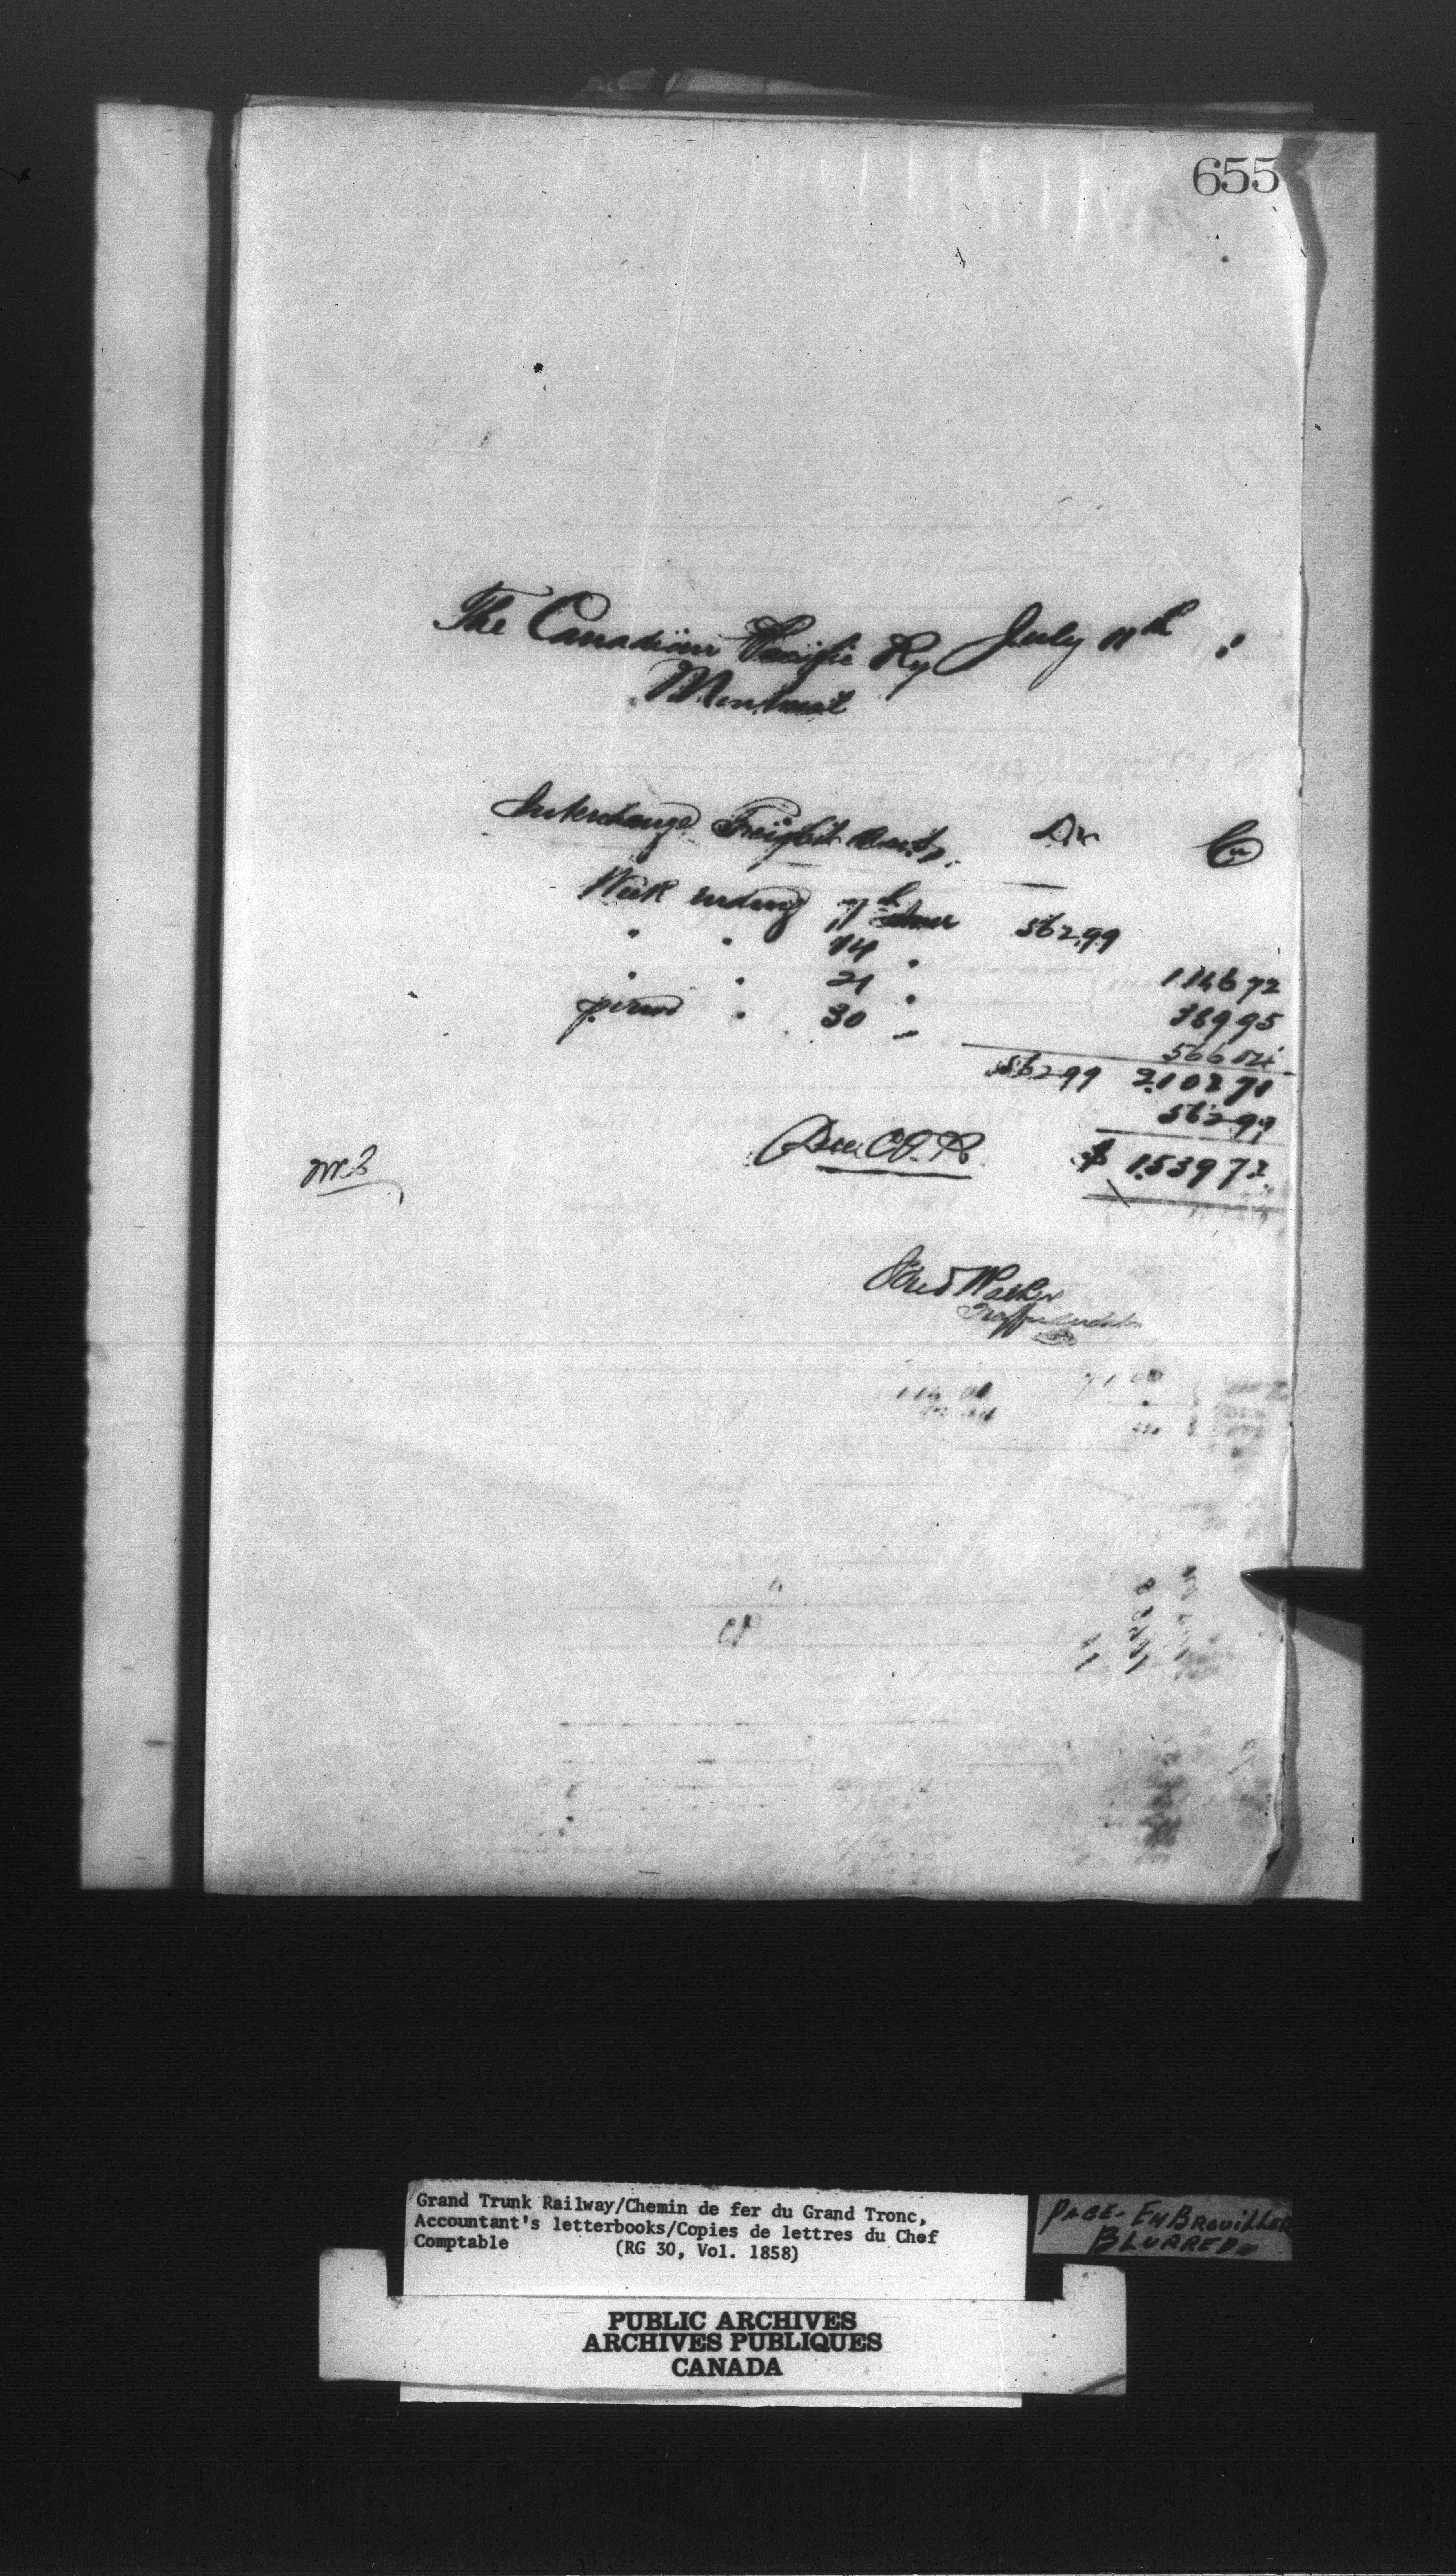 655
The Canadian Pacific Ry July 11th
Montreal
Interchange Freight Accts. Dr Cr
Week ending 7th June 562.99
" " 14 " 1146 72
" " 21 " 389 95
period " 30 " 566 04
562 99 2102 71
562 99
Due C.P.R. $ 1539 72
Traffic Auditor
114 00 71 00
CP
Grand Trunk Railway/Chemin de fer du Grand Tronc,
Accountant's letterbooks/Copies de lettres du Chef
Comptable (RG 30, Vol. 1858)
PAGE- EMBROUILLER
BLURRED
PUBLIC ARCHIVES
ARCHIVES PUBLIQUES
CANADA